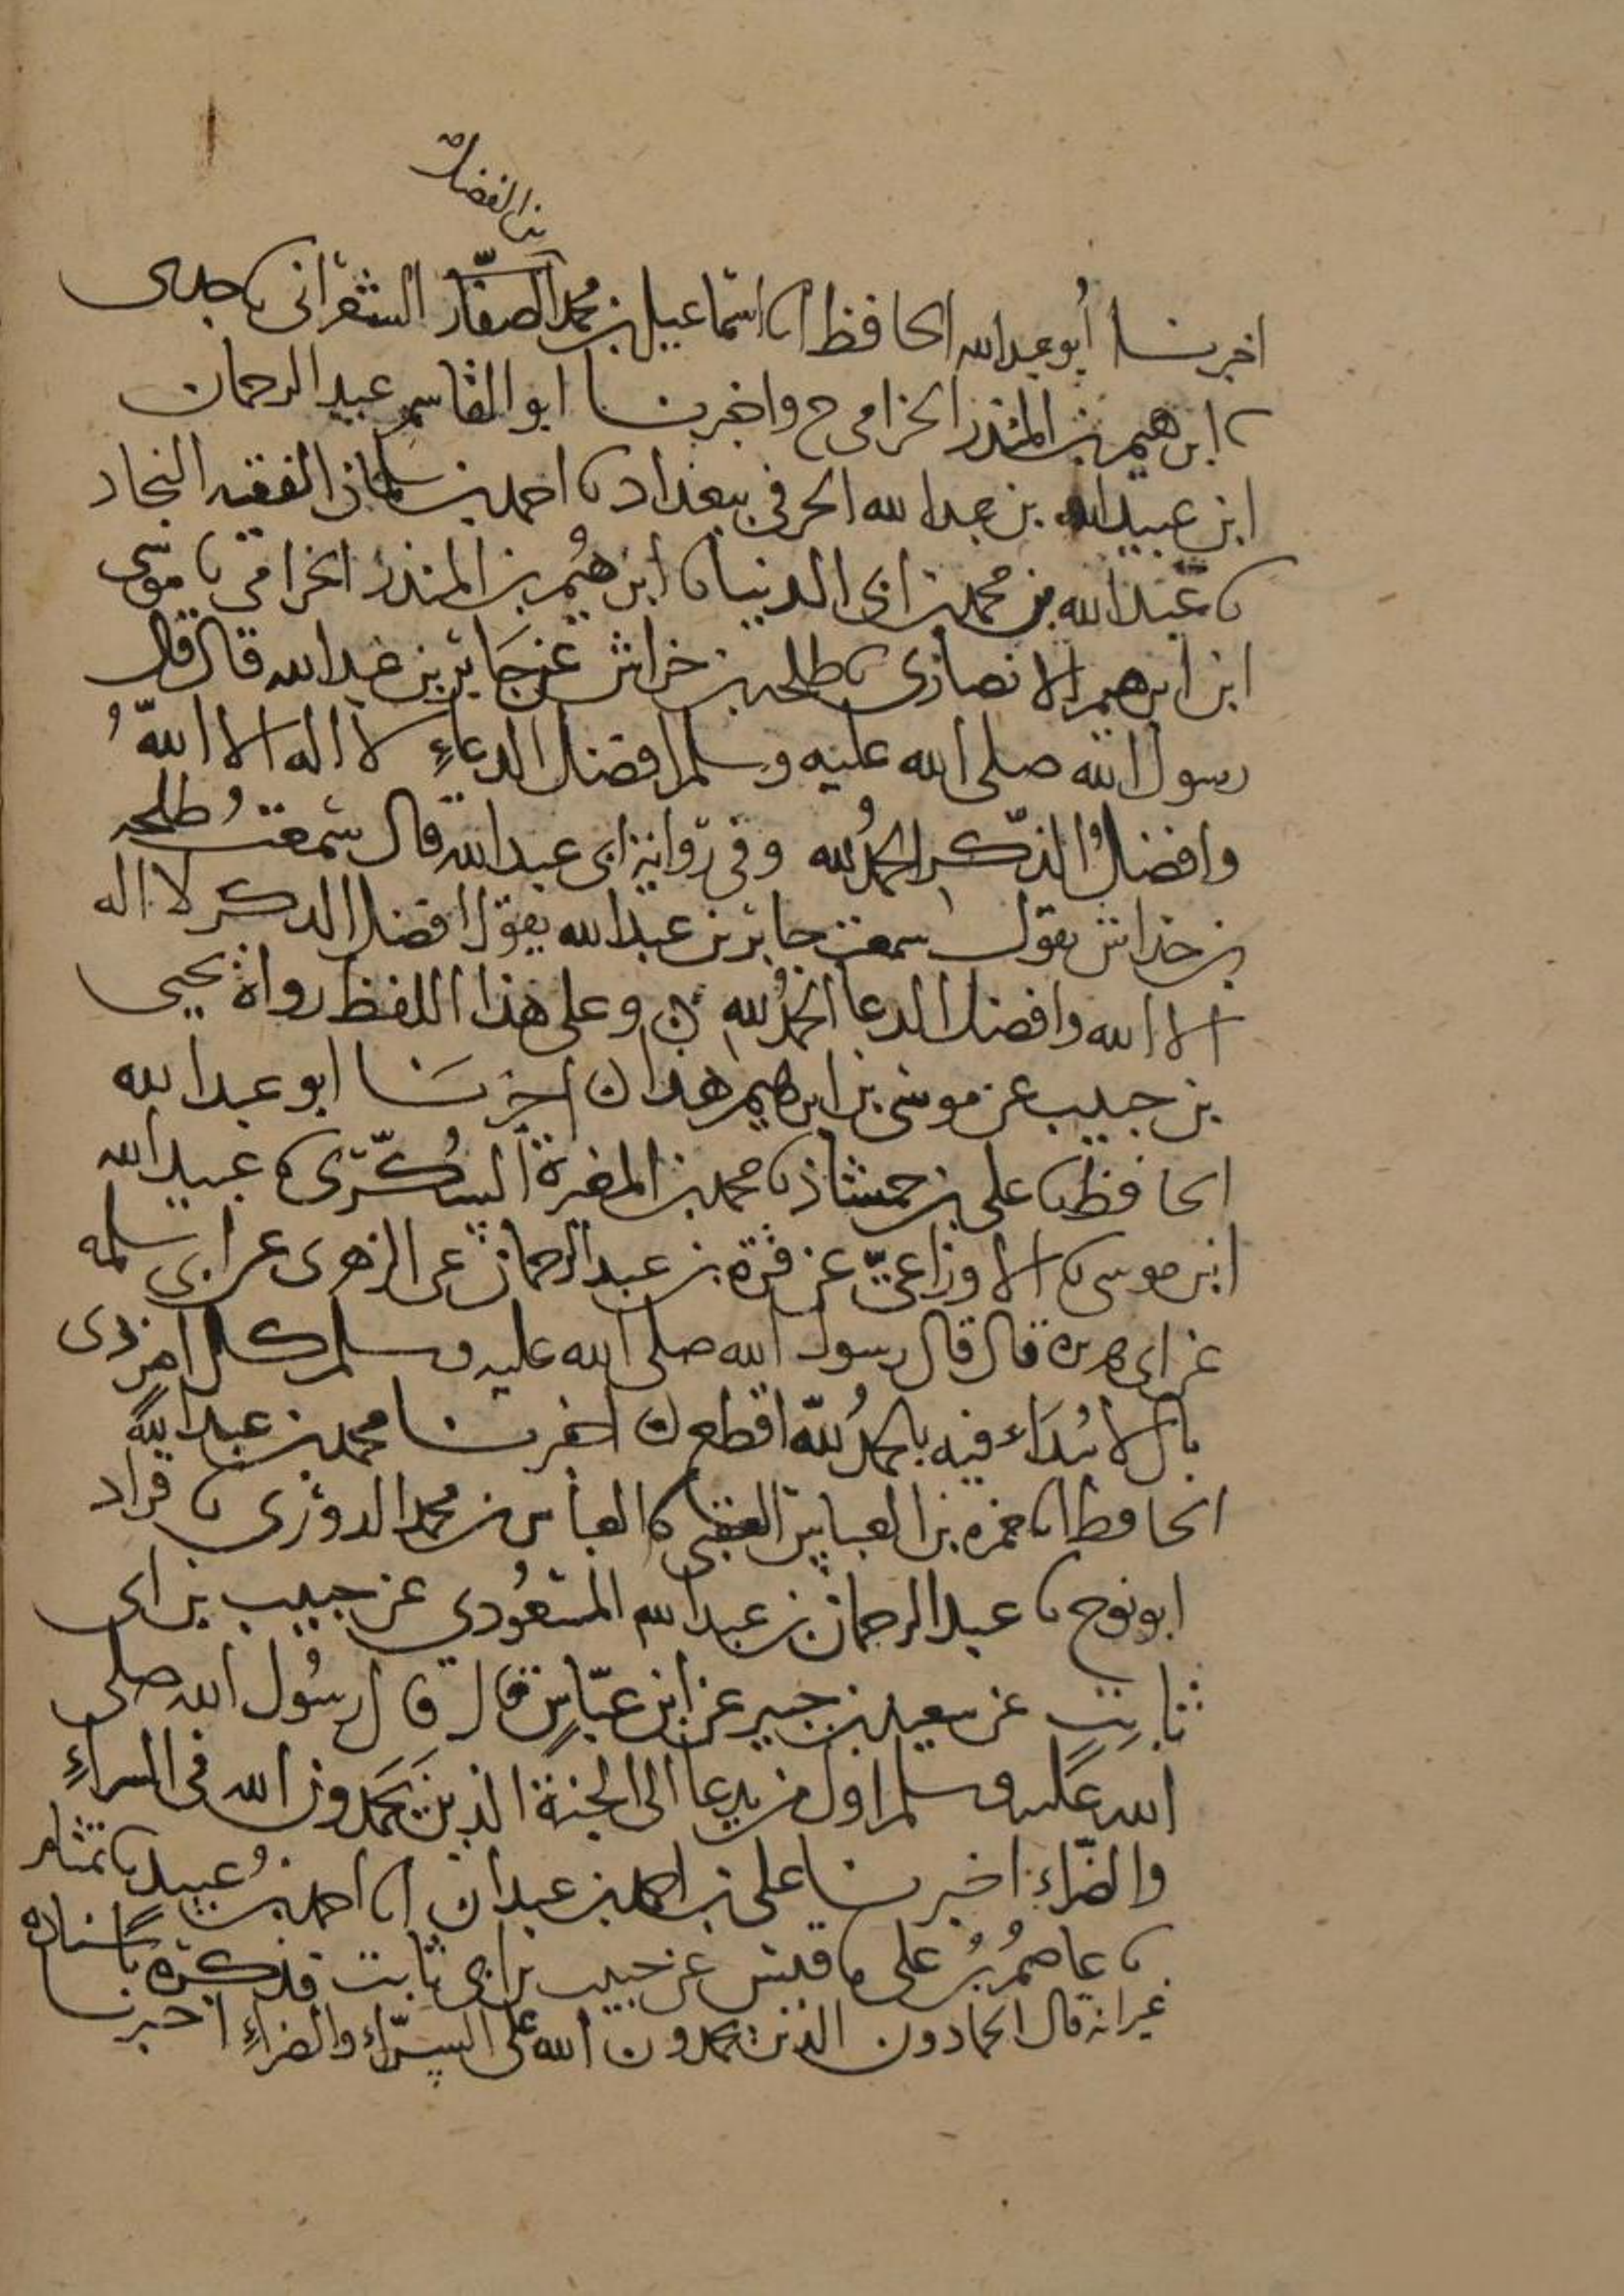 بن الفضل صح
اخبرنا أبو عبد الله الحافظ انا اسماعيل بن محمد الصفار الشعراني نا جدي
نا ابرهيم بن المنذر الحزامي ح واخبرنا ابو القاسم عبد الرحمان
ابن عبيد الله بن عبد الله الحرفي ببغداد نا احمد بن سلمان الفقيه النجاد
نا عبد الله بن محمد بن ابي الدنيا نا ابرهيم بن المنذر الحزامي نا موسى
ابن ابرهيم الانصاري نا طلحه بن خراش عن جابر بن عبد الله قال قال
رسول الله صلى الله عليه وسلم افضل الدعاءِ لا اله الا اللهُ
وافضلُ الذّكر الحمدُ لله وفي رواية ابي عبد الله قال سمعت طلحه
بن خراش يقول سمعت جابر بن عبد الله يقول افضل الذكر لا اله
الا الله وافضل الدعا الحمدُ لله ن وعلى هذا اللفظ رواه يحيى
بن حبيب عن موسى بن ابرهيم هذا ن اخبرنا ابو عبد الله
الحافظ نا علي بن حمشاذ نا محمد بن المغيرة السُكّري نا عبيد الله
ابن موسى نا الاوزاعيّ عن قرة بن عبد الرحمان عن الزهري عن ابي سلمه
عن ابي هريرة قال قال رسول الله صلى الله عليه وسلم كل امرٍ ذي
بال لا يُبدَاء فيه بالحمدُ للّه اقطع ن اخبرنا محمد بن عبد الله
الحافظ انا حمزه بن العباس العقبي نا العباس بن محمد الدوري نا قراد
ابو نوح نا عبد الرحمان بن عبد الله المسعُودي عن حبيب بن ابي
ثابتٍ عن سعيد بن جبير عن ابن عبّاسٍ قال قال رسُول الله صلى
الله عليه وسلم اول من يدعا الى الجنة الذين يَحمَدون الله في السراءِ
والضرّاء اخبرنا علي بن احمد بن عبدان انا احمد بن عبيد نا تمتام
نا عاصمُ بنُ علي نا قيس عن حبيب بن ابي ثابت فذكره باسناده
غير انه قال الحمادون الذين يحمدون الله على السرّاءِ والضراءِ اخبرنا